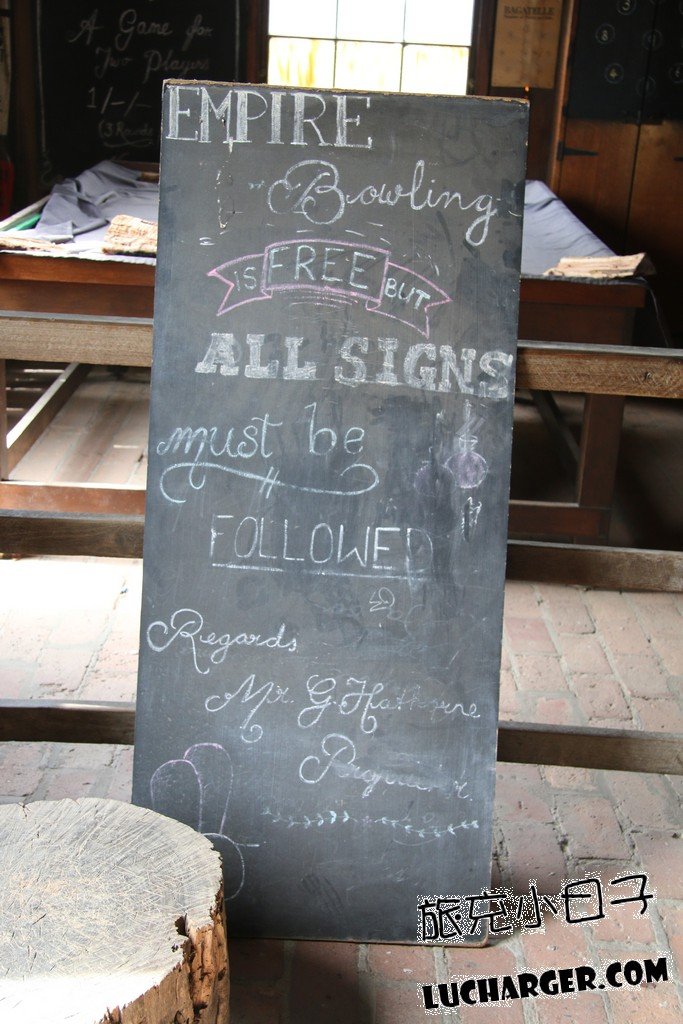 A Game for
Two Players
1/-/-
BAGATELLE
EMPIRE
Bowling
IS FREE BUT
ALL SIGNS
must be
FOLLOWED
Regards
Mr. G.
旅充小日子
LUCHARGER.COM